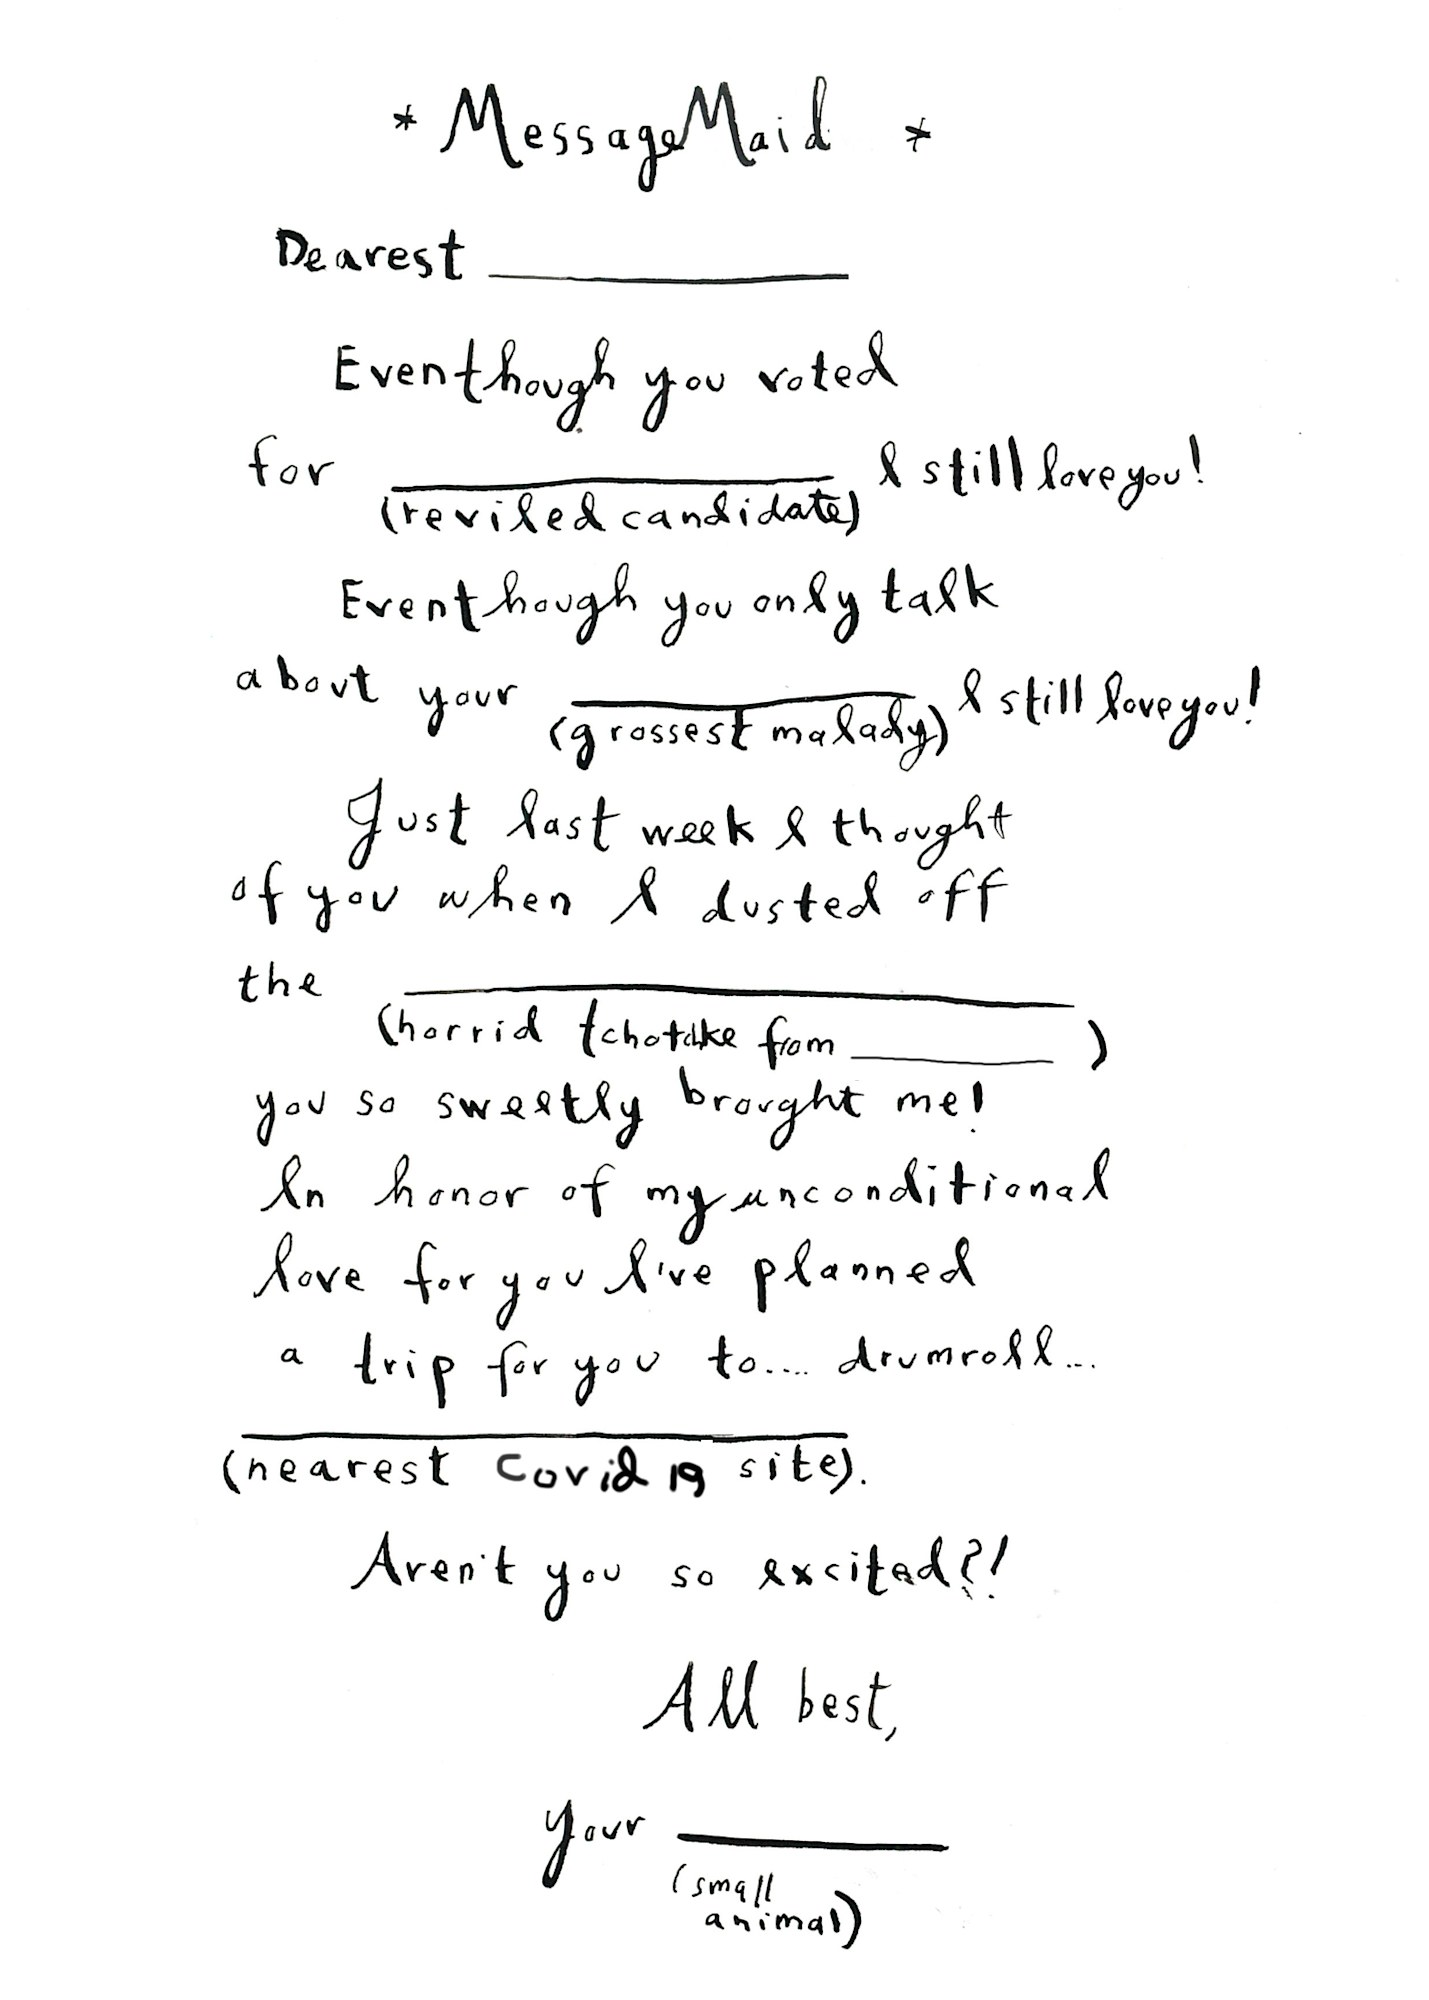 * MessageMaid *
Dearest ________
Eventhough you voted
for ________ I still love you!
(reviled candidate)
Eventhough you only talk
about your ________ I still love you!
(grossest malady)
Just last week I thought
of you when I dusted off
the ________
(horrid tchotchke from ________)
you so sweetly brought me!
In honor of my unconditional
love for you I've planned
a trip for you to.... drumroll...
________
(nearest Covid 19 site).
Aren't you so excited?!
All best,
Your ________
(small
animal)